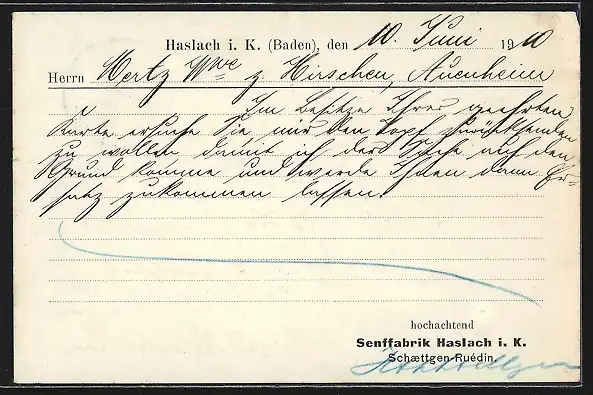 Haslach i. K. (Baden), den 10. Juni 1910
Herrn Mertz Wwe z. Hirschen, Auenheim
Im Besitze Ihrer geehrten
Karte ersuche Sie mir den Topf zurücksenden
zu wollen damit ich der Sache auf den
Grund komme und werde Ihnen dann Er-
satz zukommen lassen.
hochachtend
Senffabrik Haslach i. K.
Schættgen-Ruédin.